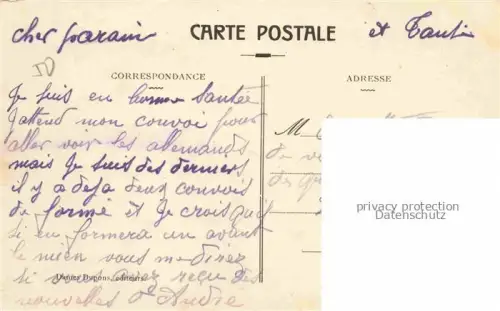 cher parain CARTE POSTALE et Tantie
CORRESPONDANCE
ADRESSE
Je suis en bonne Santée
J attend mon convoi pour
aller voir les allemands
mais Je suis des derniers
il y a deja deux convois
de formé et Je crois quil
si en formera un avant
le mien vous me direz
si vous avez reçu des
nouvelles d André
M
privacy protection
Datenschutz
éditeurs